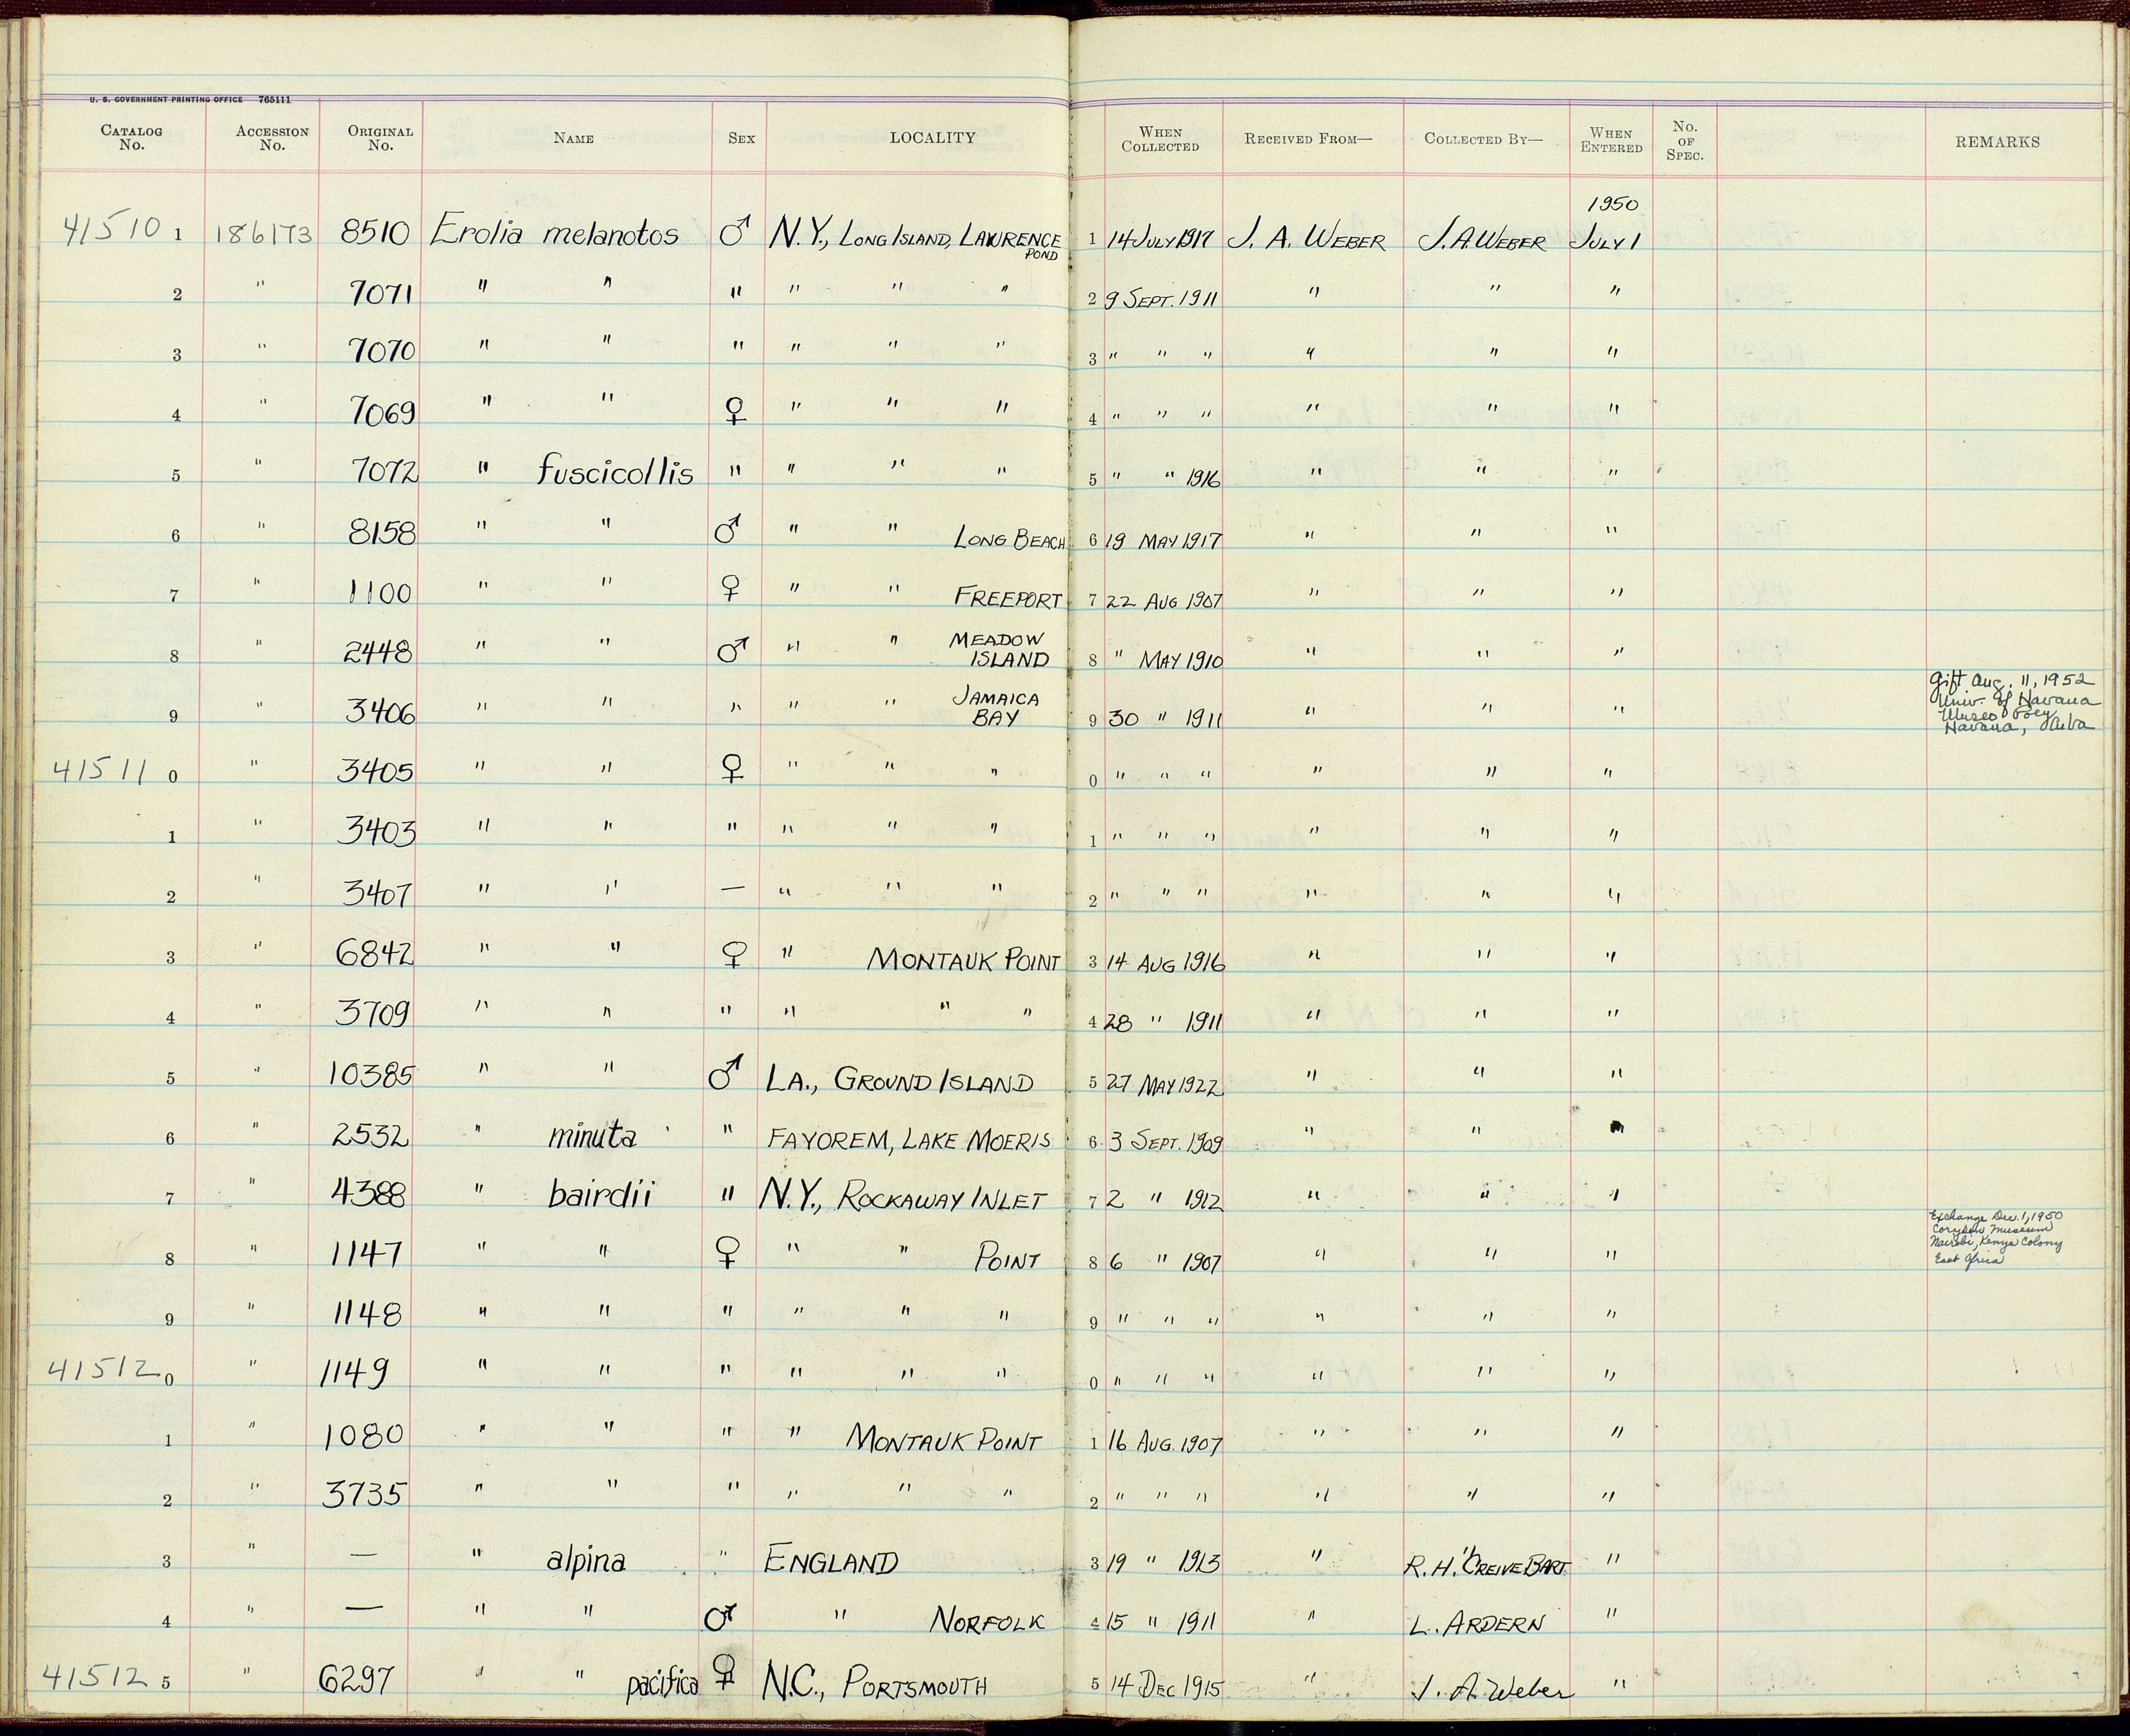 U. S. GOVERNMENT PRINTING OFFICE 765111
CATALOG No. ACCESSION No. ORIGINAL No. NAME SEX LOCALITY WHEN COLLECTED RECEIVED FROM— COLLECTED BY— WHEN ENTERED No. OF SPEC. REMARKS
1950
41510 1 186173 8510 Erolia melanotos ♂ N.Y., LONG ISLAND, LAWRENCE POND 1 14 JULY 1917 J. A. WEBER J.A. WEBER JULY 1
2 " 7071 " " " " " " 2 9 SEPT. 1911 " " "
3 " 7070 " " " " " " 3 " " " " " "
4 " 7069 " " ♀ " " " 4 " " " " " "
5 " 7072 " fuscicollis " " " " 5 " " 1916 " " "
6 " 8158 " " ♂ " " LONG BEACH 6 19 MAY 1917 " " "
7 " 1100 " " ♀ " " FREEPORT 7 22 AUG 1907 " " "
8 " 2448 " " ♂ " " MEADOW ISLAND 8 " MAY 1910 " " "
9 " 3406 " " " " " JAMAICA BAY 9 30 " 1911 " " " Gift Aug. 11, 1952 Univ. of Havana Museo Poey Havana, Cuba
41511 0 " 3405 " " ♀ " " " 0 " " " " " "
1 " 3403 " " " " " " 1 " " " " " "
2 " 3407 " " — " " " 2 " " " " " "
3 " 6842 " " ♀ " MONTAUK POINT 3 14 AUG 1916 " " "
4 " 3709 " " " " " " 4 28 " 1911 " " "
5 " 10385 " " ♂ LA., GROUND ISLAND 5 27 MAY 1922 " " "
6 " 2532 " minuta " FAYOREM, LAKE MOERIS 6 3 SEPT. 1909 " " "
7 " 4388 " bairdii " N.Y., ROCKAWAY INLET 7 2 " 1912 " " "
8 " 1147 " " ♀ " " POINT 8 6 " 1907 " " " Exchange Dec. 1, 1950 Coryndon Museum Nairobi, Kenya Colony East Africa
9 " 1148 " " " " " " 9 " " " " " "
41512 0 " 1149 " " " " " " 0 " " " " " "
1 " 1080 " " " " MONTAUK POINT 1 16 AUG. 1907 " " "
2 " 3735 " " " " " " 2 " " " " " "
3 " — " alpina " ENGLAND 3 19 " 1913 " R. H. "CREIVE BART. "
4 " — " " ♂ " NORFOLK 4 15 " 1911 " L. ARDERN "
41512 5 " 6297 " " pacifica ♀ N.C., PORTSMOUTH 5 14 DEC 1915 " J. A. Weber "